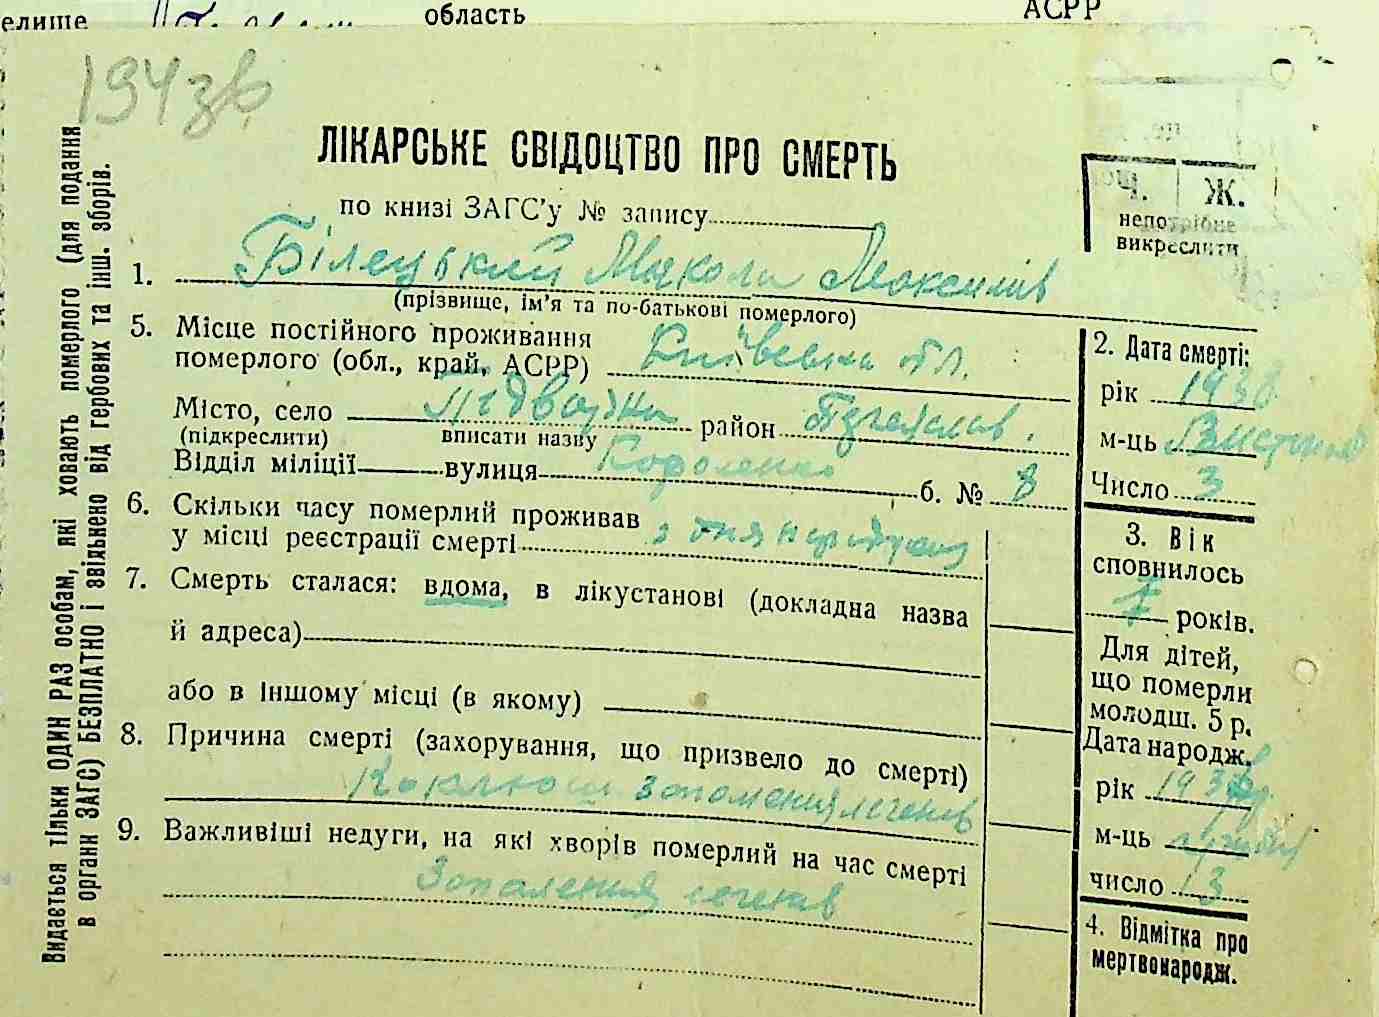 елище область АСРР
1943в
ЛІКАРСЬКЕ СВІДОЦТВО ПРО СМЕРТЬ
по книзі ЗАГС'у № запису
Ч. Ж.
непотрібне
викреслити
1. Білецький Микола
(прізвище, ім'я та по-батькові померлого)
5. Місце постійного проживання
померлого (обл., край, АСРР) Київська обл.
Місто, село район
(підкреслити) вписати назву
Відділ міліції вулиця Короленко б. № 8
6. Скільки часу померлий проживав
у місці реєстрації смерті з дня
7. Смерть сталася: вдома, в лікустанові (докладна назва
й адреса)
або в іншому місці (в якому)
8. Причина смерті (захорування, що призвело до смерті)
Коклюш запалення легенів
9. Важливіші недуги, на які хворів померлий на час смерті
Запалення легенів
2. Дата смерті:
рік 1938
м-ць
Число 3
3. Вік
сповнилось
років.
Для дітей,
що померли
молодш. 5 р.
Дата народж.
рік
м-ць
число 13
4. Відмітка про
мертвонародж.
Видається тільки ОДИН РАЗ особам, які ховають померлого (для подання
в органи ЗАГС) БЕЗПЛАТНО і звільнено від гербових та інш. зборів.